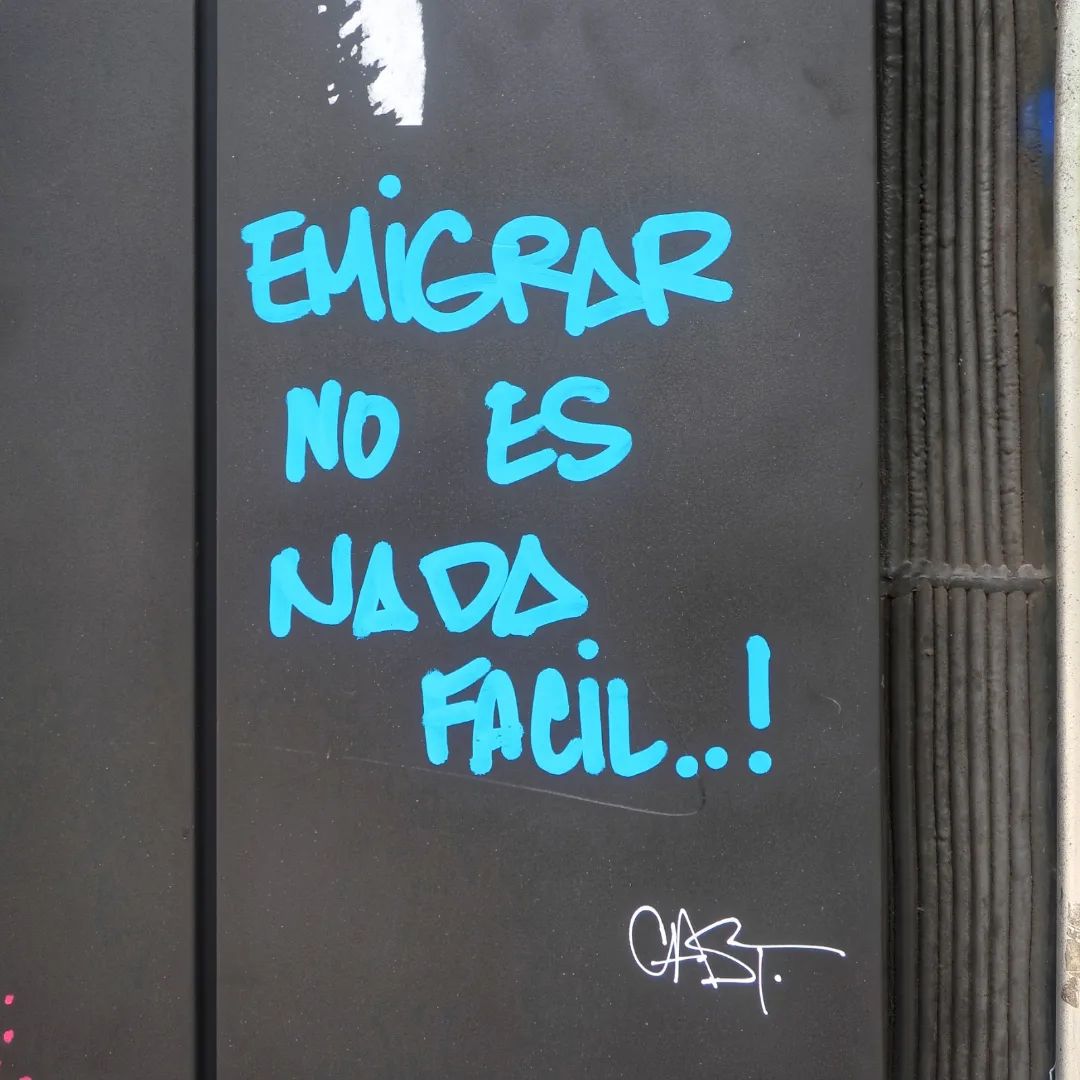 EMiGRAR
NO ES
NADA
FACiL..!
CAST.